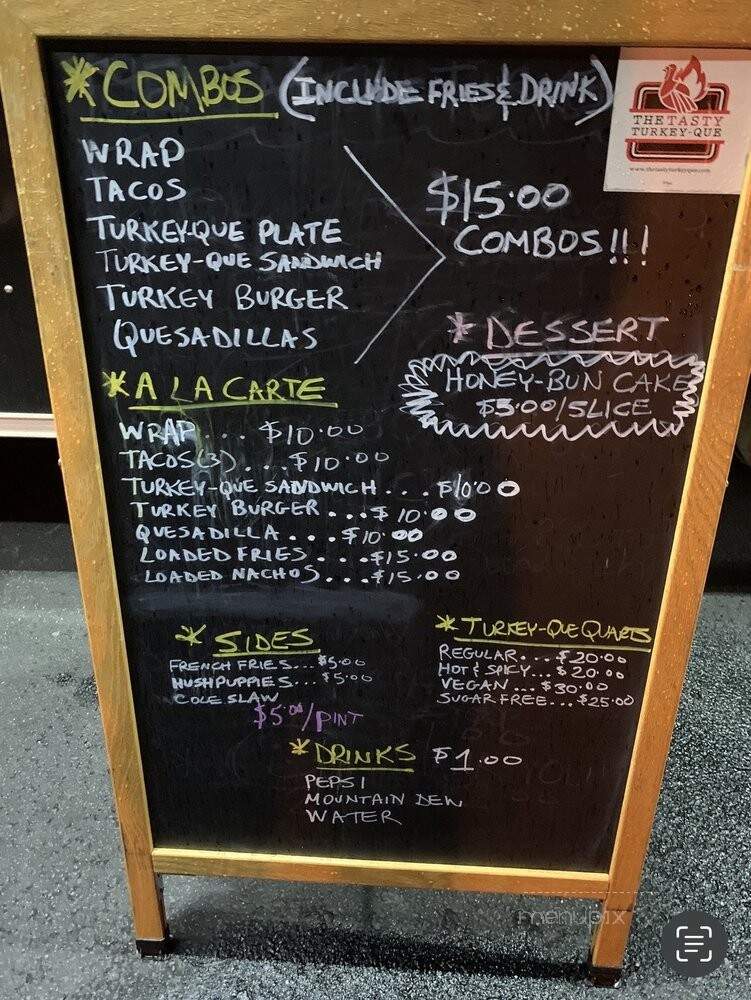 *COMBOS (INCLUDE FRIES & DRINK)
THE TASTY
TURKEY-QUE
www.thetastyturkeyque.com
WRAP
TACOS
TURKEY-QUE PLATE
TURKEY-QUE SANDWICH
TURKEY BURGER
QUESADILLAS
$15.00
COMBOS!!!
*DESSERT
HONEY-BUN CAKE
$5.00/SLICE
*A LA CARTE
WRAP... $10.00
TACOS(3)...$10.00
TURKEY-QUE SANDWICH...$10.00
TURKEY BURGER...$10.00
QUESADILLA...$10.00
LOADED FRIES...$15.00
LOADED NACHOS...$15.00
*SIDES
FRENCH FRIES...$5.00
HUSHPUPPIES...$5.00
COLE SLAW
$5.00/PINT
*TURKEY-QUE QUARTS
REGULAR...$20.00
HOT & SPICY...$20.00
VEGAN...$30.00
SUGAR FREE...$25.00
*DRINKS $1.00
PEPSI
MOUNTAIN DEW
WATER
menupix